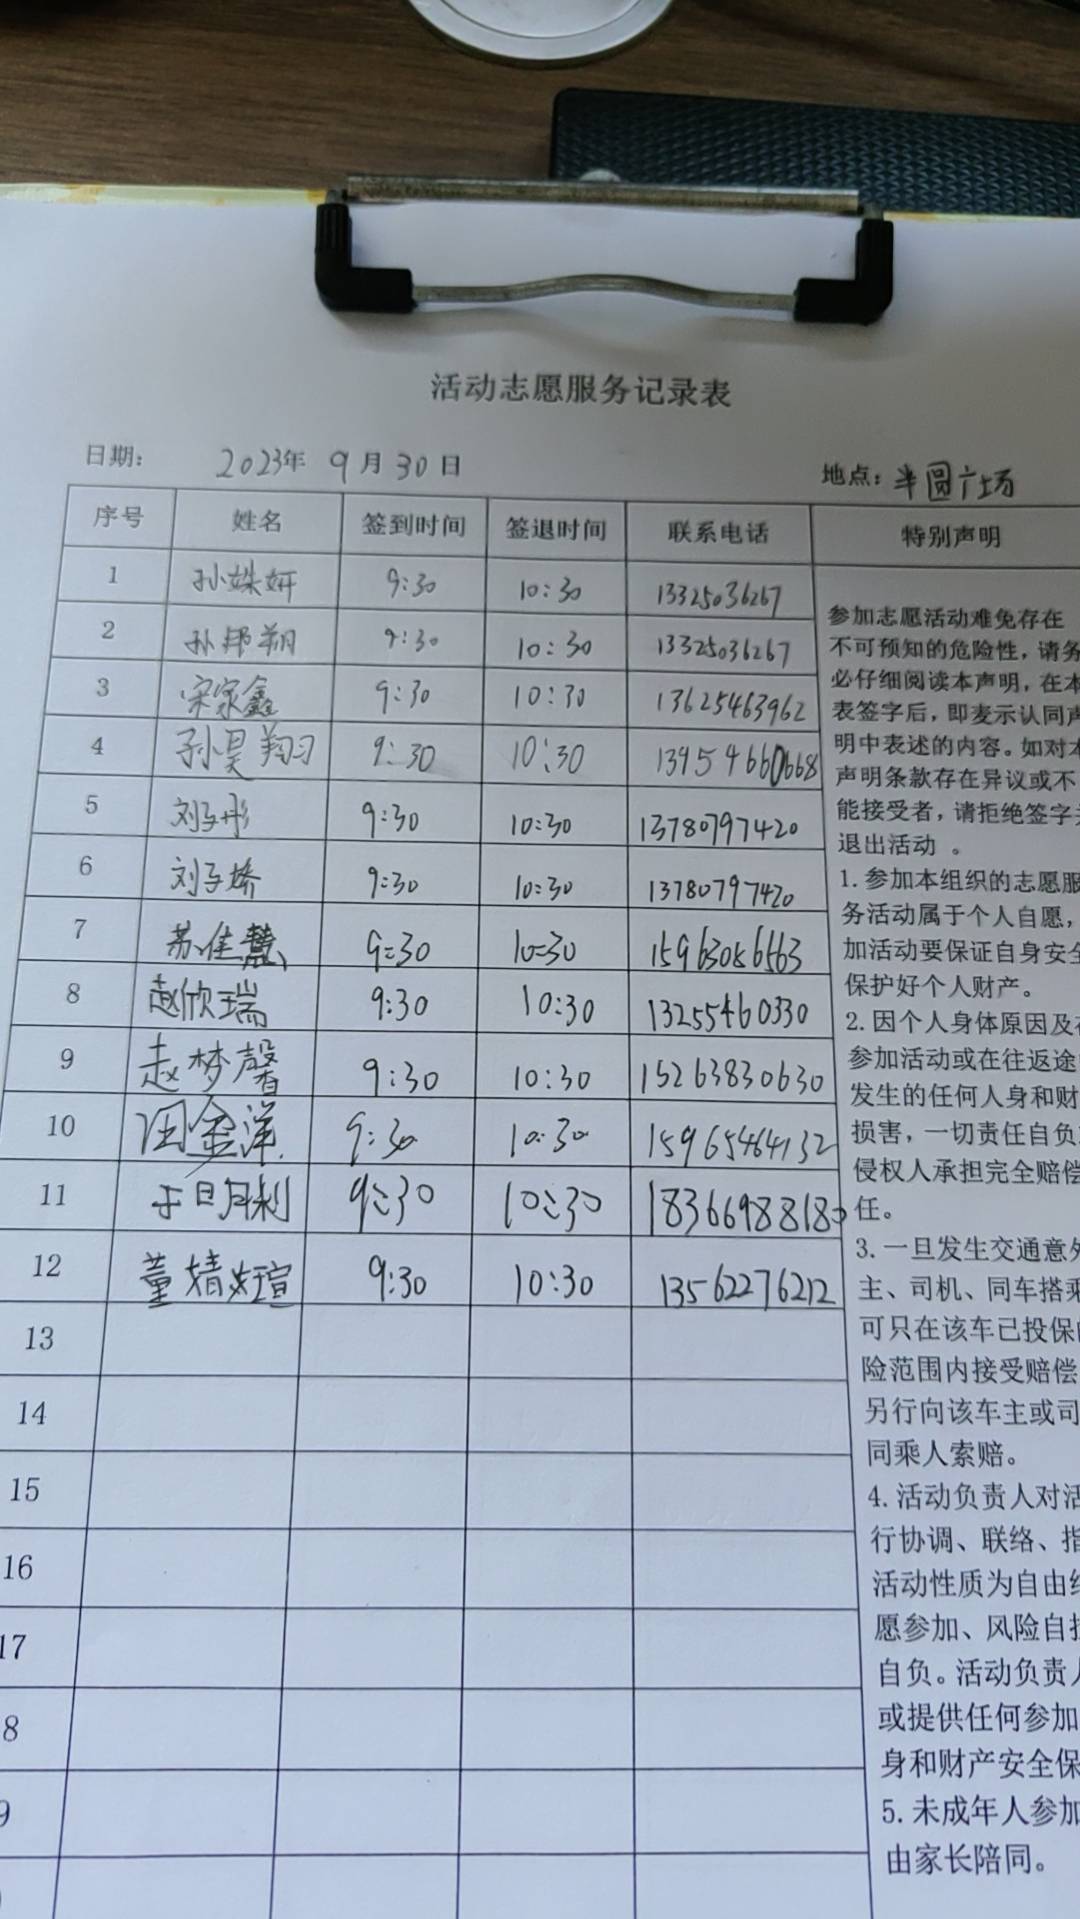 活动志愿服务记录表
日期: 2023年 9月30日
地点: 半圆广场
序号 姓名 签到时间 签退时间 联系电话 特别声明
1 孙姝妍 9:30 10:30 13325036267
2 孙邦翔 9:30 10:30 13325036267
3 宋家鑫 9:30 10:30 13625463962
4 孙昊翔 9:30 10:30 13954660668
5 刘子彤 9:30 10:30 13780797420
6 刘子娇 9:30 10:30 13780797420
7 苏佳慧 9:30 10:30 15963056563
8 赵欣瑞 9:30 10:30 13255460330
9 赵梦馨 9:30 10:30 15263830630
10 金洋 9:30 10:30 15965464132
11 9:30 10:30 18366988180
12 董婧瑄 9:30 10:30 13562276212
13
14
15
16
17
8
9
参加志愿活动难免存在
不可预知的危险性，请务
必仔细阅读本声明，在本
表签字后，即麦示认同声
明中表述的内容。如对本
声明条款存在异议或不
能接受者，请拒绝签字并
退出活动 。
1.参加本组织的志愿服
务活动属于个人自愿，
加活动要保证自身安全
保护好个人财产。
2.因个人身体原因及
参加活动或在往返途
发生的任何人身和财
损害，一切责任自负
侵权人承担完全赔偿
任。
3.一旦发生交通意外
主、司机、同车搭乘
可只在该车已投保
险范围内接受赔偿
另行向该车主或司
同乘人索赔。
4.活动负责人对活
行协调、联络、指
活动性质为自由
愿参加、风险自担
自负。活动负责人
或提供任何参加
身和财产安全保
5.未成年人参加
由家长陪同。